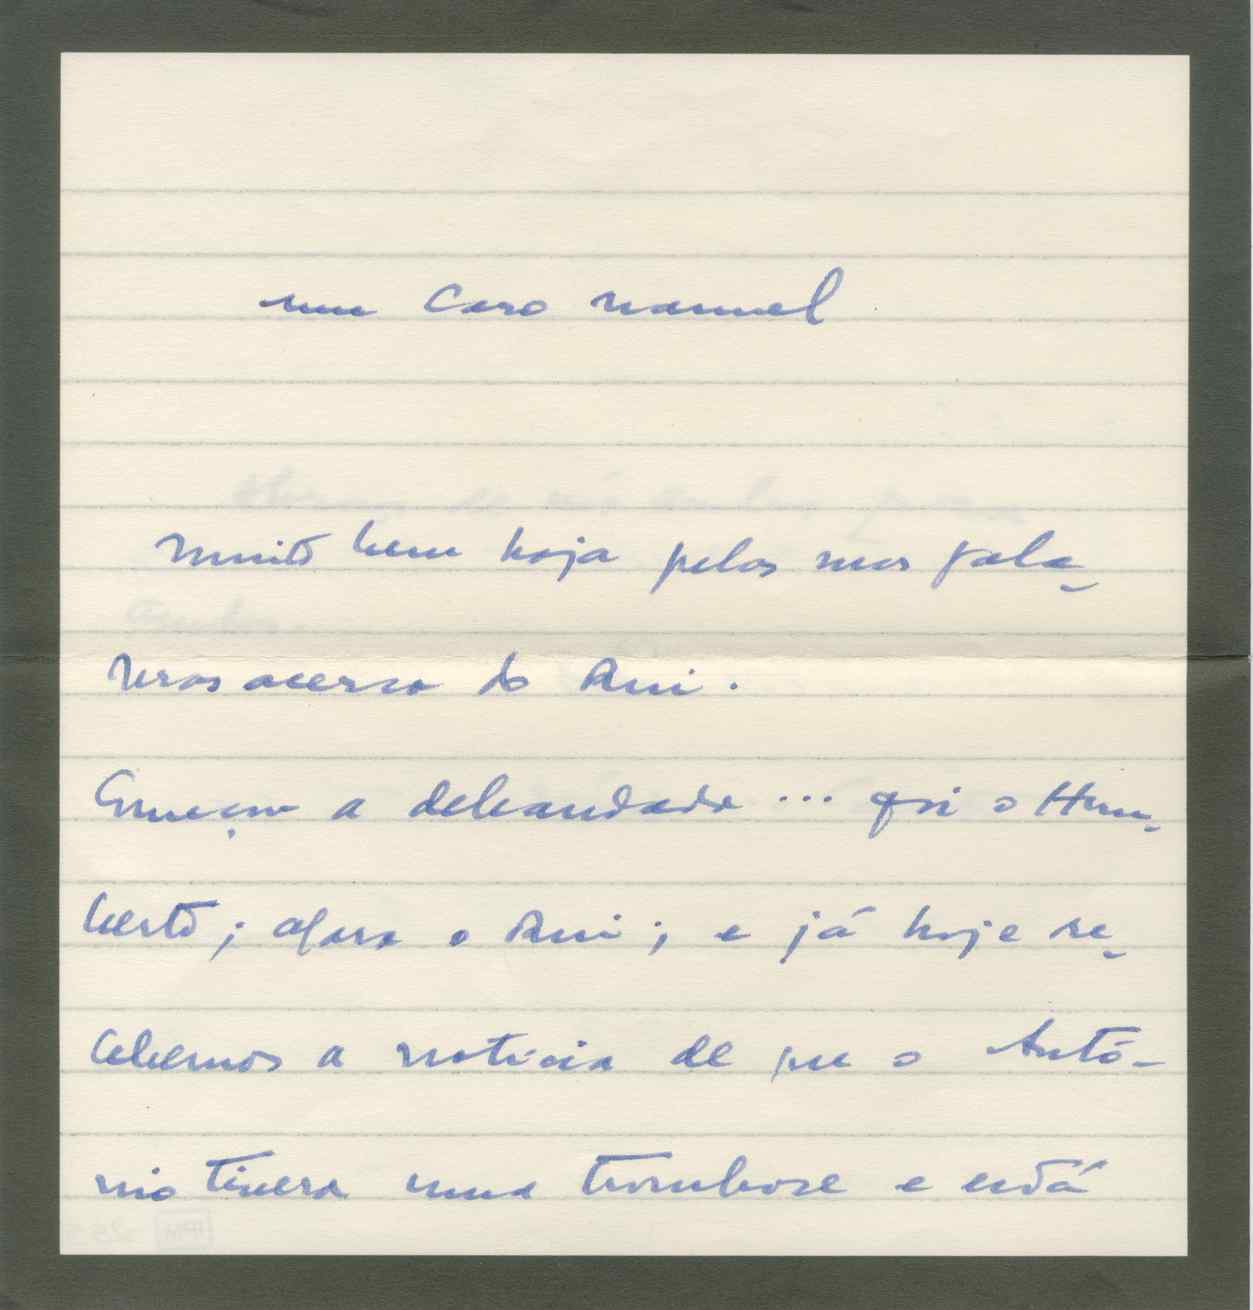 meu Caro Manuel
Muito bem haja pelas suas pala-
vras acerca do Rui.
Começou a debandada ... foi o Hum-
berto; agora o Rui; e já hoje re-
cebemos a notícia de que o Antó-
nio tivera uma trombose e está